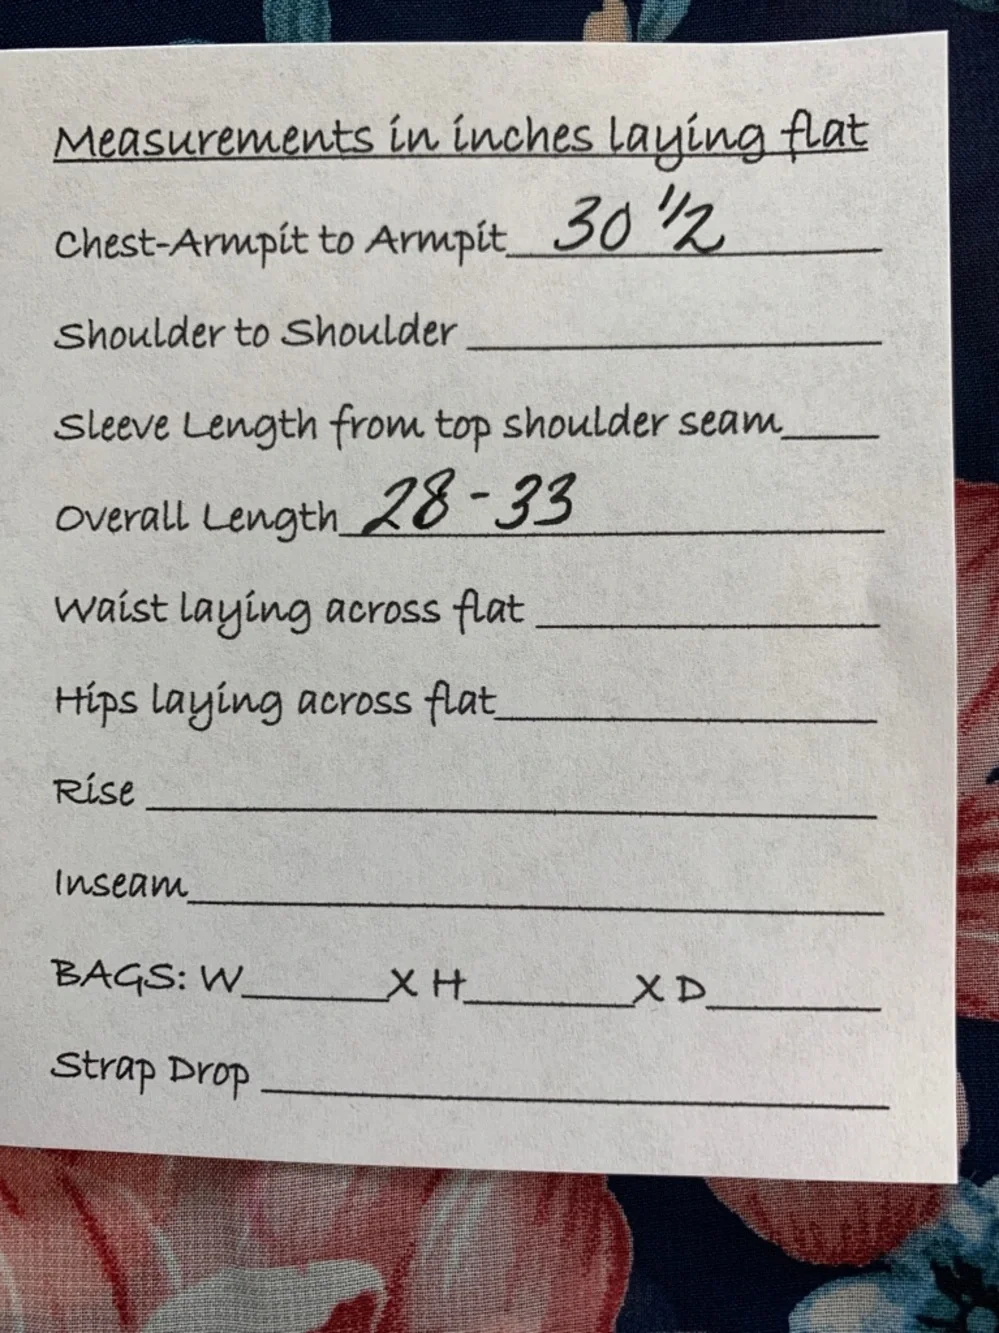 Measurements in inches laying flat
Chest-Armpit to Armpit 30 1/2
Shoulder to Shoulder
Sleeve Length from top shoulder seam
Overall Length 28-33
Waist laying across flat
Hips laying across flat
Rise
Inseam
BAGS: W X H X D
Strap Drop